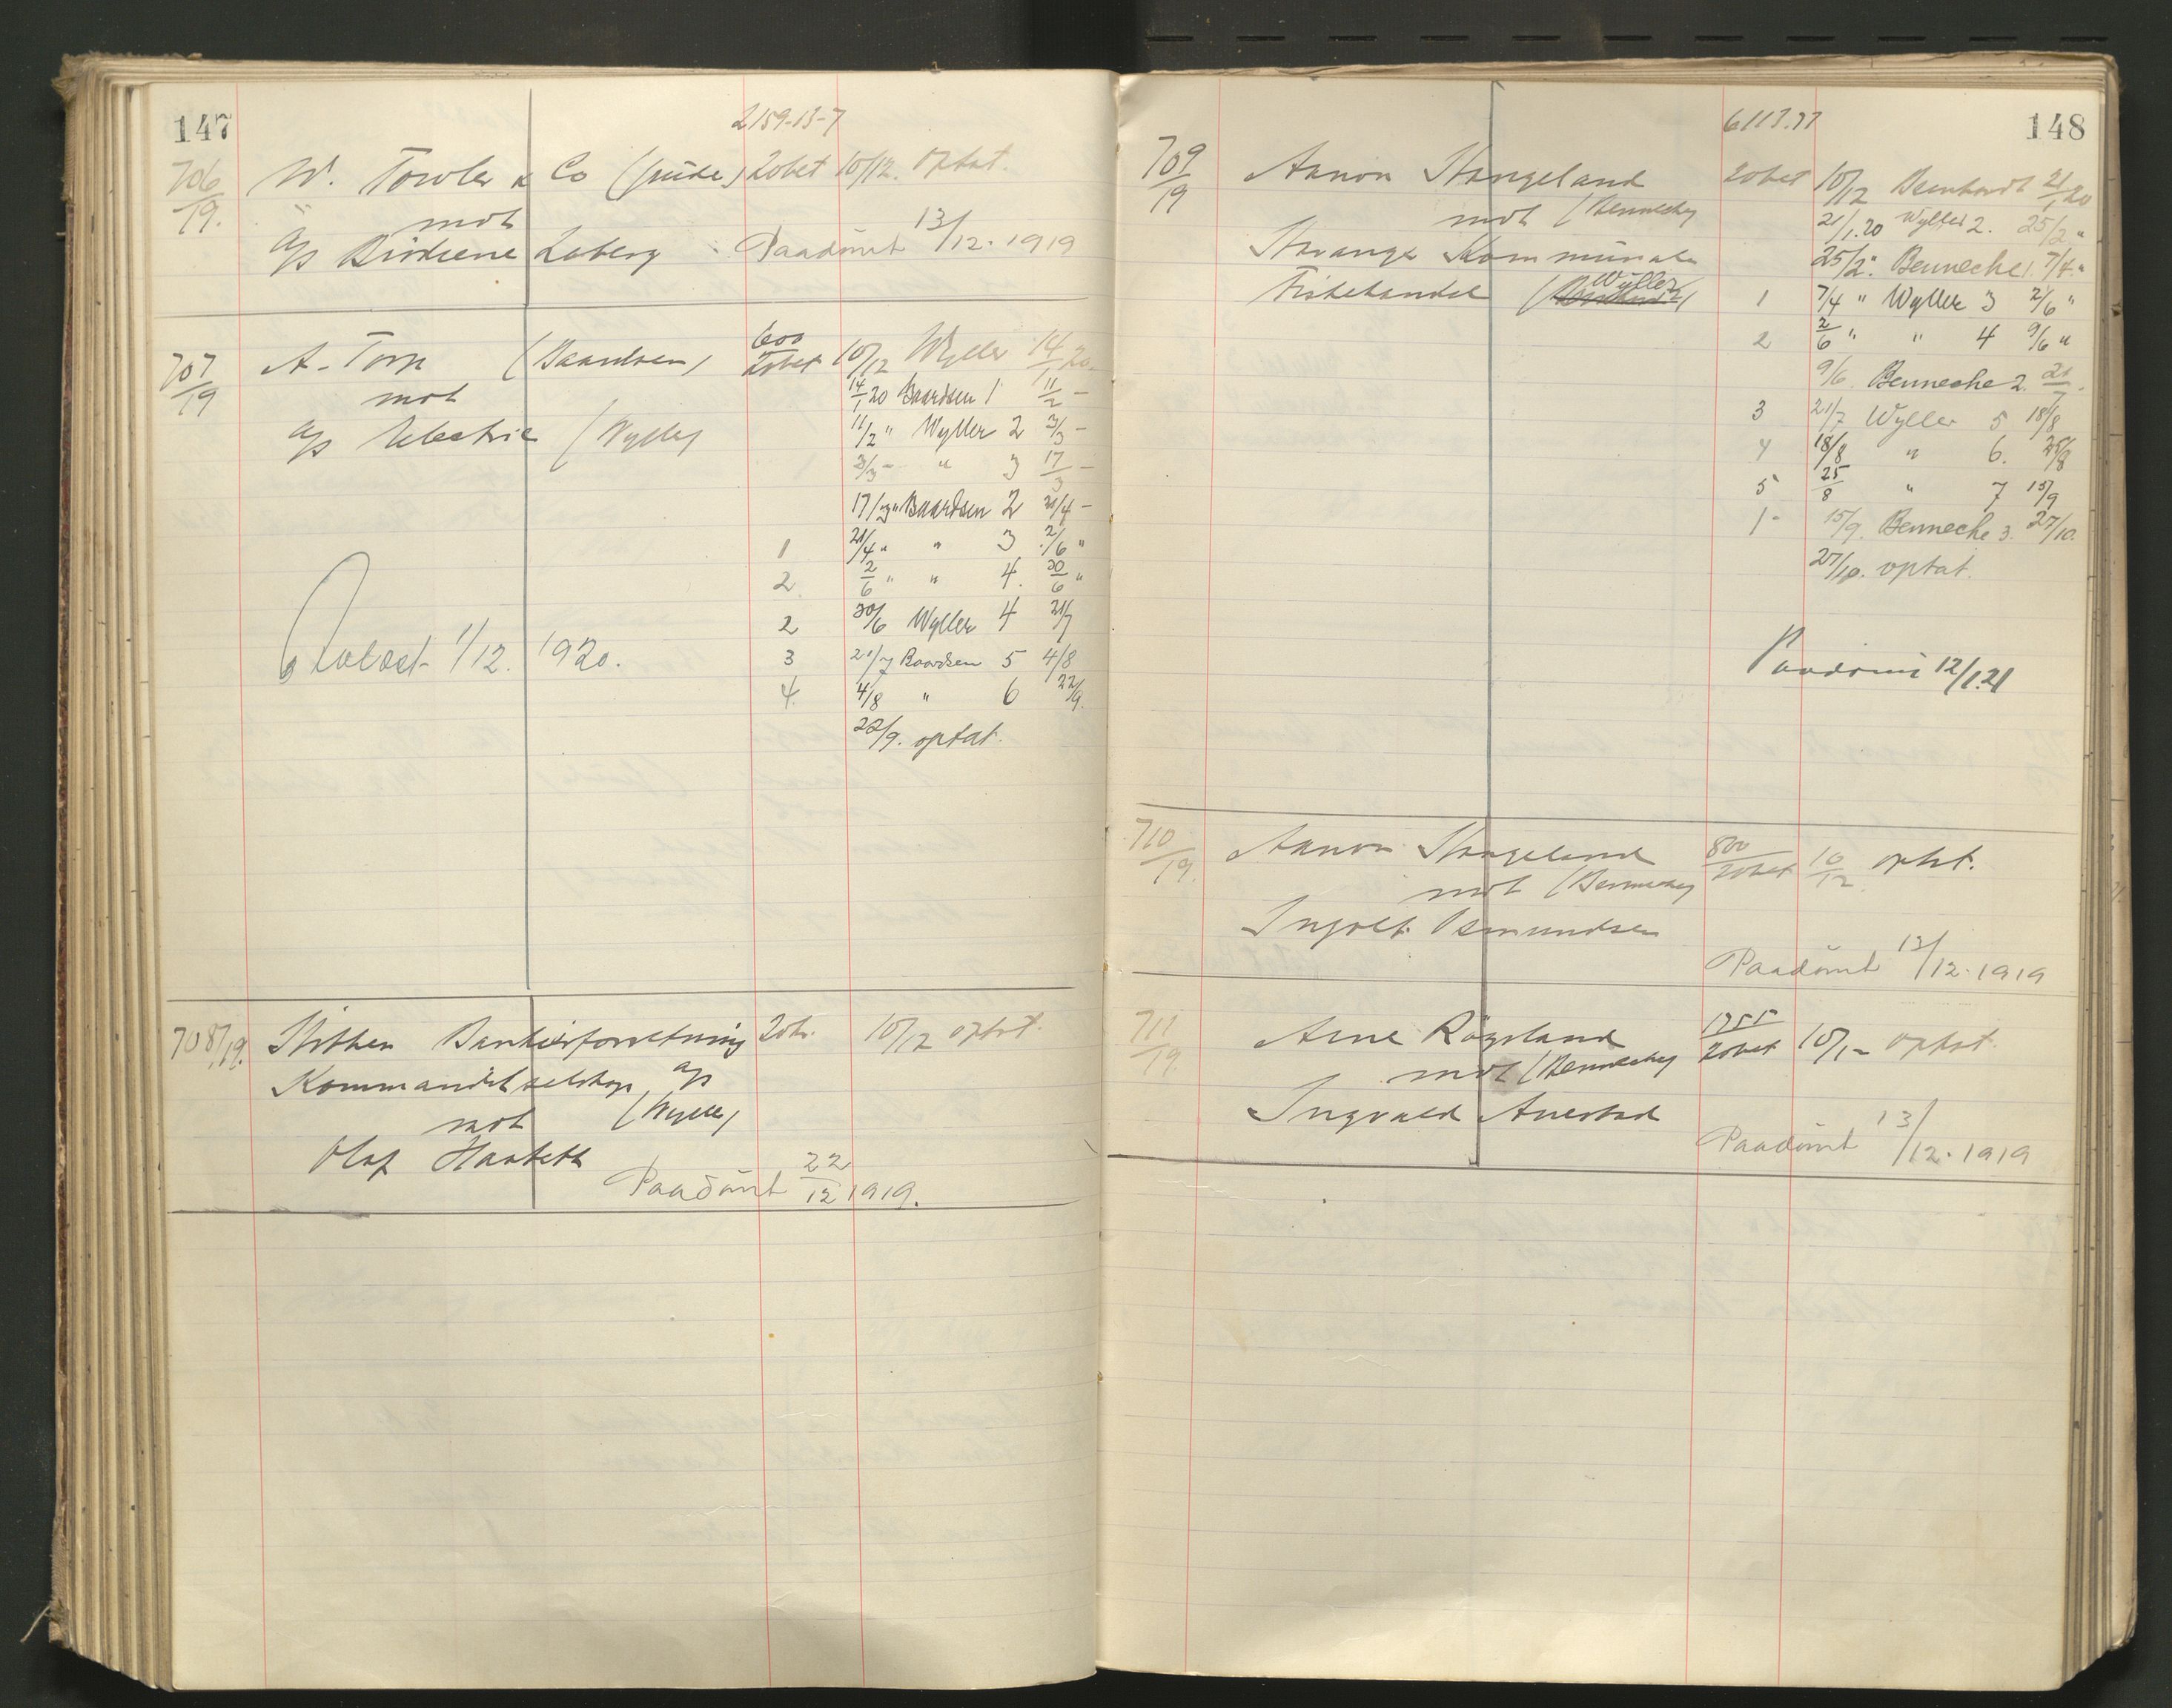 147
2159-13-7
706/19. W. Towler & Co 20bet 10/12. optat.
mot
A/S Birkeene Loberg Paadömt 13/12. 1919
600
707/19 A. Torp (Baardsen) 20bet 10/12 Wyller 14/1 20.
mot 14/1 20 Baardsen 1 11/2 -
A/S Electric (Wyller) 11/2 " Wyller 2 3/3 -
3/3 - " 3 17/3 -
17/3 " Baardsen 2 21/4 -
1 21/4 " " 3 2/6 "
2 2/6 " " 4. 30/6 "
2 30/6 Wyller 4 21/7
1/12. 1920. 3 21/7 Baardsen 5 4/8
4 4/8 " 6 22/9.
22/9. optat.
708/19. Bankierforretning 20b. 10/12 optat.
Kommanditselskap A/S
mot (Wyller)
Olaf
Paadömt 22/12 1919.
148
6117.77
709/19 Aanon Stangeland 20bet 10/12 21/1 20
mot (Benneche) 21/1.20 Wyller 2. 25/2 "
Stavanger Kommunale 25/2 " Benneche 1. 7/4 "
Fiskehandel (Wyller) 1 7/4 " Wyller 3 2/6 "
2 2/6 " " 4 9/6 "
9/6. Benneche 2. 21/7.
3 21/7 Wyller 5 18/8
4 18/8 " 6. 25/8
5 25/8 " 7 15/9
1- 15/9. Benneche 3. 27/10.
27/10. optat.
Paadömt 12/1.21
710/19. Aanon Stangeland 800 20bet 10/12 optat.
mot (Benneche)
Ingolf Osmundsen
Paadömt 13/12. 1919
711/19. Arne Rögeland 1255 20bet 10/12 optat.
mot (Benneche)
Ingvald Auestad
Paadömt 13/12. 1919